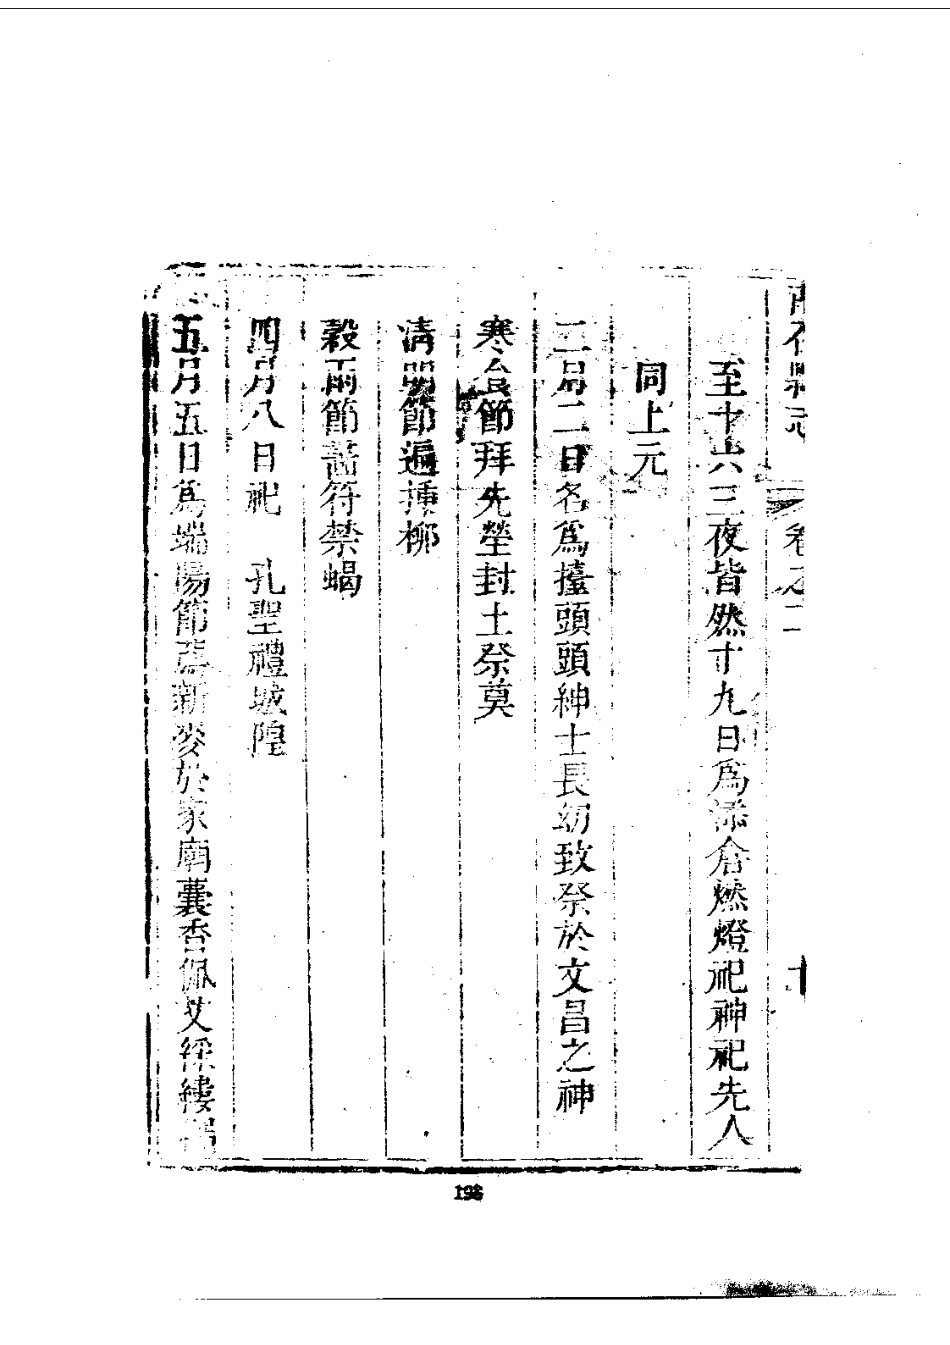 縣志 卷之二 十
至十六三夜皆然十九日為添倉燃燈祀神祀先人
同上元
二月二日名為擡頭頭紳士長幼致祭於文昌之神
寒食節拜先塋封土祭奠
清明節遍挿柳
穀雨節書符禁蝎
四月八日祀 孔聖禮城隍
五月五日為端陽節薦新麥於家廟囊香佩艾綵縷
198